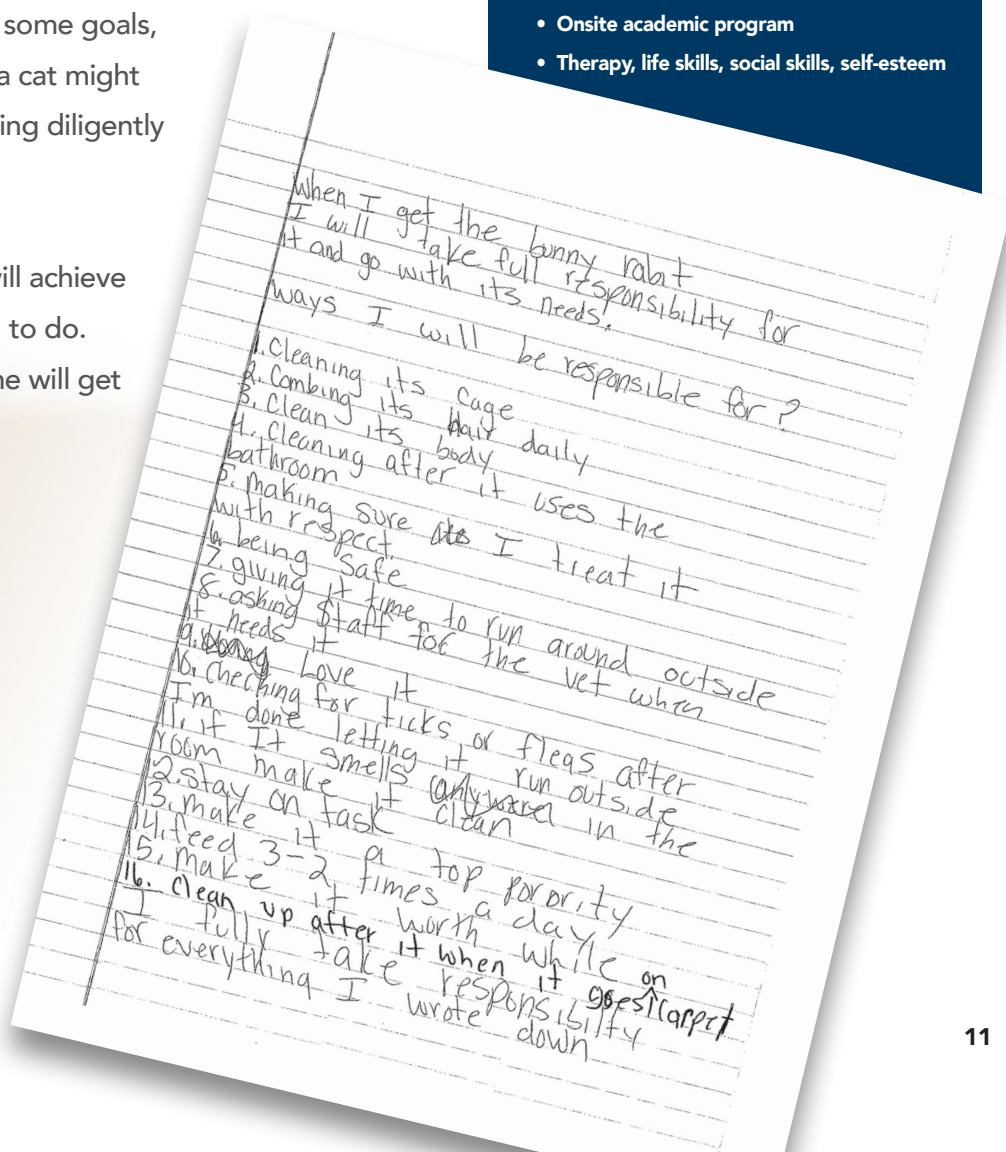 some goals,
a cat might
ing diligently
ill achieve
to do.
ne will get
• Onsite academic program
• Therapy, life skills, social skills, self-esteem
When I get the bunny rabit
I will take full responsibility for
it and go with its needs.
Ways I will be responsible for?
1. Cleaning its cage
2. Combing its hair daily
3. Clean its body
4. cleaning after it uses the
bathroom
5. making sure I treat it
with respect.
6. being safe
7. giving it time to run around outside
8. asking Staff for the vet when
it needs it
9. Love it
10. Checking for ticks or fleas after
I'm done letting it run outside
11. if It smells in the
room make it clean
12. stay on task
13. make it a top porority
14. feed 3-2 times a day
15. make it worth while
16. Clean up after it when it goes on carpet
I fully take responsibilty
for everything I wrote down
11